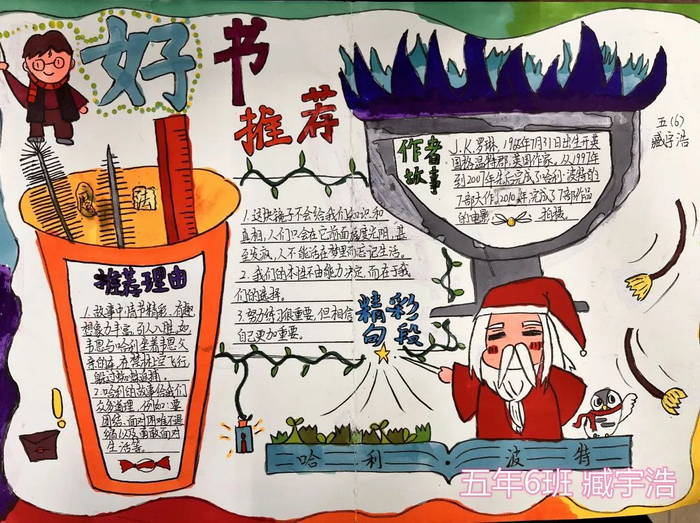 好书
推荐
五(6)
臧宇浩
作者
故事
J.K.罗琳,1965年7月31日出生于英
国格温特郡,英国作家。从1997年
到2007年先后完成了哈利·波特的
7部大作,2010年完成了7部作品
的电影拍摄。
1.这块镜子不会给我们知识和
真相,人们只会在它前面虚度光阴,甚
至发疯,人不能活在梦里而忘记生活。
2.我们的本性不由能力决定,而在于我
们的选择。
3.努力练习很重要,但相信
自己更加重要。
精彩
句段
魔法
推荐理由
1.故事中情节精彩,有趣
想象力丰富,引人入胜,如
韦思与哈利坐着韦思父
亲的车
2.哈利的故事给我们
众多道理,例如:要
团结,面对困难不退
缩以及勇敢面对
生活等。
哈利·波特
五年6班 臧宇浩